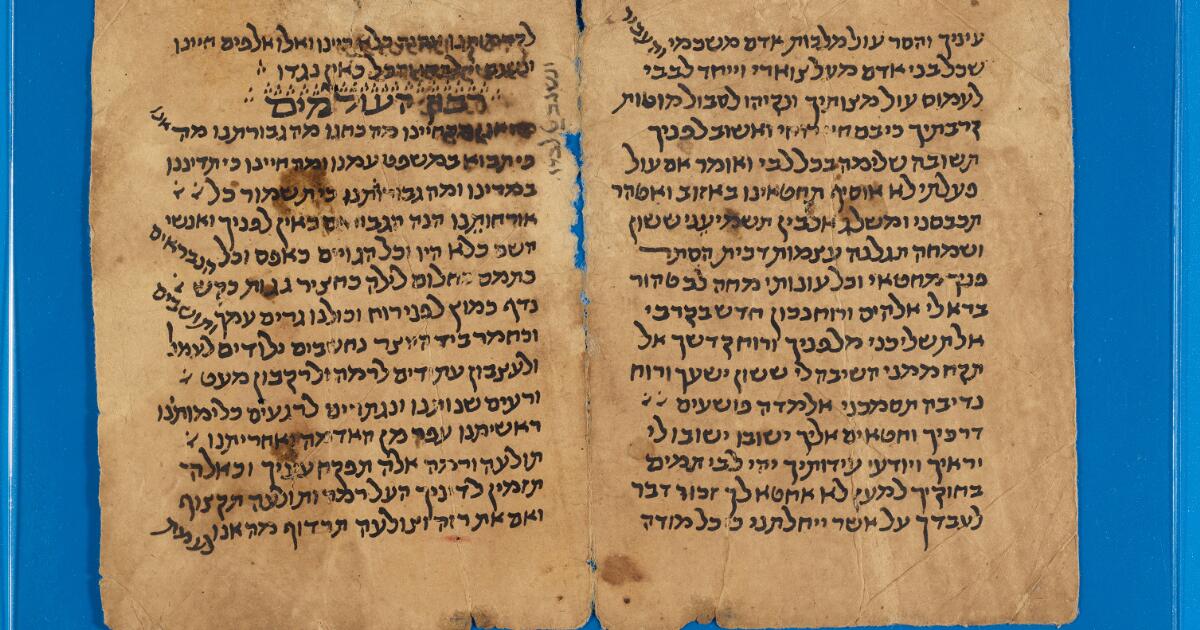 עיניך והסר עול מלכות אדם משכמי והעביר
שכל בני אדם מעל צוארי וייחד לבבי
לעמוס עול מצותיך ונקיהו לסבול מוטות
קרבתיך כי בם ואשוב לפניך
תשובה שלימה בכל לבי ואומר אם עול
פעלתי לא אוסיף תחטאינו באזוב ואטהר
תכבסני ומשלג אלבין תשמיעני ששון
ושמחה תגלנה עצמות דכית הסתר
פניך מחטאי וכל עונותי מחה לב טהור
ברא לי אלהים ורוח נכון חדש בקרבי
אל תשליכני מלפניך ורוח קדשך אל
תקח ממני השיבה לי ששון ישעך ורוח
נדיבה תסמכני אלמדה פושעים
דרכיך וחטאים אליך ישובו ישובו לי
יראיך ויודעי עידותיך יהי לבי תמים
בחוקיך למען לא אחטא לך זכור דבר
לעבדך על אשר ייחלתני כי כל מודה
היינו ואלו אלפים חיינו
כאין נגדו
רבון העולמים
חיינו מה כחנו מה גבורתנו מה אנו
כי תבוא במשפט עמנו ומה חיינו כי תדיננו
במדינו ומה גבורותנו כי תשמור כל
אורחותנו הנה הגבורים כאין לפניך ואנשי
השם כלא היו וכל הגויים כאפס וכל הנבראים
כתמם כחלום לילה כחציר גגות כקש
נדף כמוץ לפני רוח וכולנו גרים עמך ותושבים
וכחמר ביד היוצר נחשבים ילודים לעמל
ולעצבון עתידים לרמה ולרקבון מעט
ורעים שנותנו ונגתיים לרגעים כלימותנו
ראשיתנו עפר מן האדמה ואחריתנו
תולעה ורמה אלה תפקח עיניך וכאלה
תזמין לדיניך העל רמה ותולעה תקצוף
ואם את רזה ותולעה תרדוף מה אנו